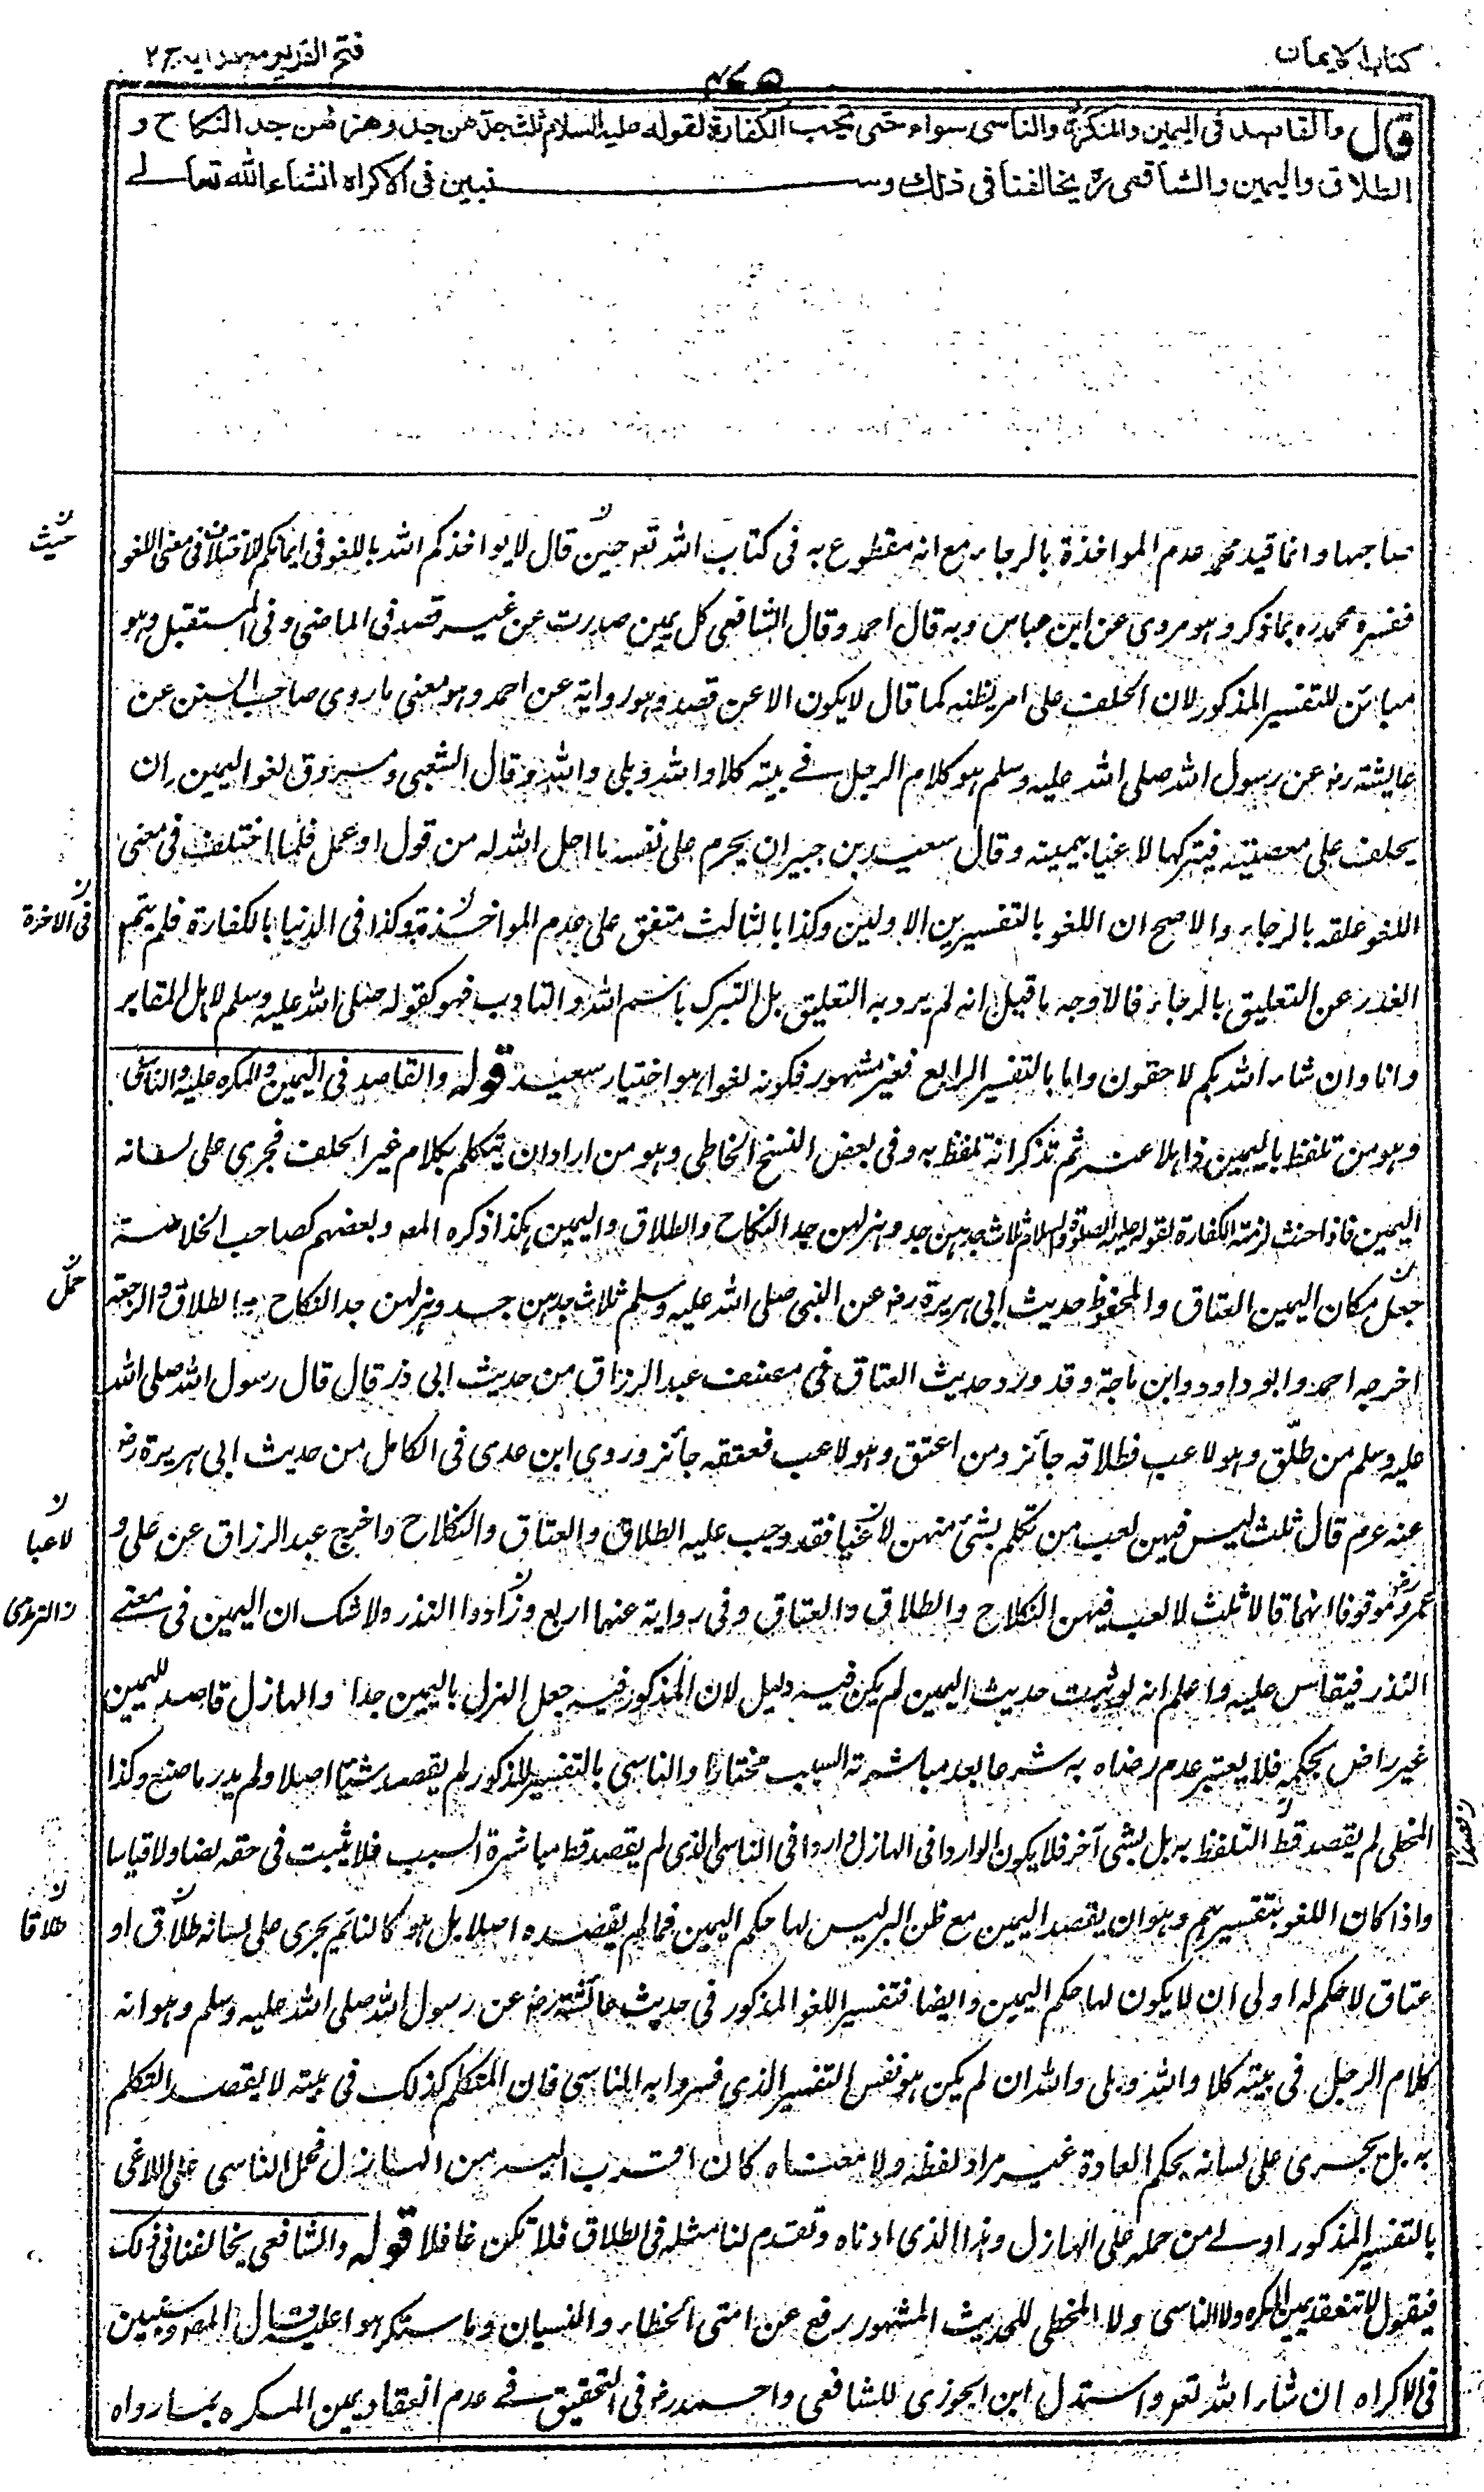 كتاب الايمان
فتح القدير مع هدايه ج ٢
قال والقاصد في اليمين والمكره والناسي سواء حتى تجب الكفارة لقوله عليه السلام ثلث جدهن جد وهزلهن جد النكاح و
الطلاق واليمين والشافعي رح يخالفنا في ذلك وسنبين في الاكراه انشاء الله تعالى
صاحبها وانما قيد محمد عدم المواخذة بالرجاء مع انه مقطوع به في كتاب الله تعو حين قال لا يواخذكم الله باللغو في ايمانكم للاختلاف في معنى اللغو
حيث
ففسره محمد ره بما ذكر وهو مروي عن ابن عباس وبه قال احمد وقال الشافعي كل يمين صدرت عن غير قصد في الماضي وفي المستقبل وهو
مبائن للتفسير المذكور لان الحلف على امر يظنه كما قال لا يكون الا عن قصد وهو رواية عن احمد وهو معنى ما روى صاحب السنن عن
عايشة رض عن رسول الله صلى الله عليه وسلم هو كلام الرجل في بيته كلا والله وبلى والله وقال الشعبي ومسروق لغو اليمين ان
يحلف على معصية فيتركها لاغيا بيمينه وقال سعيد بن جبير ان يحرم على نفسه ما احل الله له من قول او عمل فلما اختلف في معنى
اللغو علقه بالرجاء والاصح ان اللغو بالتفسيرين الاولين وكذا بالثالث متفق على عدم المواخذة به وكذا في الدنيا بالكفارة فلم يتم
في الاخرة
العذر عن التعليق بالرجاء فالاوجه ما قيل انه لم يرد به التعليق بل التبرك باسم الله والتادب فهو كقوله صلى الله عليه وسلم لاهل المقابر
وانا وان شاء الله بكم لاحقون واما بالتفسير الرابع فغير مشهور فكونه لغوا هو اختيار سعيد قوله والقاصد في اليمين والمكره عليه والناسي
وهو من تلفظ باليمين ذاهلا عنه ثم تذكر انه تلفظ به وفي بعض النسخ الخاطي وهو من اراد ان يتكلم بكلام غير الحلف فجرى على لسانه
اليمين فاذا حنث لزمته الكفارة لقوله عليه الصلوة والسلام ثلاث جدهن جد وهزلهن جد النكاح والطلاق واليمين هكذا ذكره المص وبعضهم كصاحب الخلاصة
جعل مكان اليمين العتاق والمحفوظ حديث ابي هريرة رض عن النبي صلى الله عليه وسلم ثلاث جدهن جد وهزلهن جد النكاح والطلاق والرجعة
اخرجه احمد وابو داود وابن ماجة وقد ورد حديث العتاق في مصنف عبد الرزاق من حديث ابي ذر قال قال رسول الله صلى الله
عليه وسلم من طلق وهو لاعب فطلاقه جائز ومن اعتق وهو لاعب فعتقه جائز وروى ابن عدي في الكامل من حديث ابي هريرة رض
عنه عم قال ثلث ليس فيهن لعب من تكلم بشئ منهن لاغيا فقد وجب عليه الطلاق والعتاق والنكاح واخرج عبد الرزاق عن علي و
لاعبا
عمر رض موقوفا انهما قالا ثلث لا لعب فيهن النكاح والطلاق والعتاق وفي رواية عنهما اربع وزادوا النذر ولا شك ان اليمين في معنى
ن الترمذي
النذر فيقاس عليه واعلم انه لو ثبت حديث اليمين لم يكن فيه دليل لان المذكور فيه جعل الهزل باليمين جدا والهازل قاصد لليمين
غير راض بحكمه فلا يعتبر عدم رضاه به شرعا بعد مباشرته السبب مختارا والناسي بالتفسير المذكور لم يقصد شيئا اصلا ولم يدر ما صنع وكذا
المخطي لم يقصد قط التلفظ به بل بشئ آخر فلا يكون الوارد في الهازل واردا في الناسي الذي لم يقصد قط مباشرة السبب فلا يثبت في حقه نصا ولا قياسا
واذا كان اللغو بتفسيرهم وهو ان يقصد اليمين مع ظن البر ليس لها حكم اليمين فما لم يقصده اصلا بل هو كالنايم يجري على لسانه طلاق او
طلاقا
عتاق لا حكم له اولى ان لا يكون لها حكم اليمين وايضا فتفسير اللغو المذكور في حديث عائشة رض عن رسول الله صلى الله عليه وسلم وهو انه
كلام الرجل في بيته كلا والله وبلى والله ان لم يكن هو نفس التفسير الذي فسروا به الناسي فان المتكلم كذلك في بيته لا يقصد التكلم
به بل يجري على لسانه بحكم العادة غير مراد لفظه ولا معناه كان اقرب اليه من الهازل فحمل الناسي على اللاغي
بالتفسير المذكور اولى من حمله على الهازل وهذا الذي ادناه وتقدم لنا مثله في الطلاق فلا تكن غافلا قوله والشافعي يخالفنا في ذلك
فيقول لا تنعقد يمين المكره ولا الناسي ولا المخطي للحديث المشهور رفع عن امتي الخطاء والنسيان وما استكرهوا عليه قال المص وسنبين
في الاكراه ان شاء الله تعو واستدل ابن الجوزي للشافعي واحمد رض في التحقيق في عدم انعقاد يمين المكره بما رواه